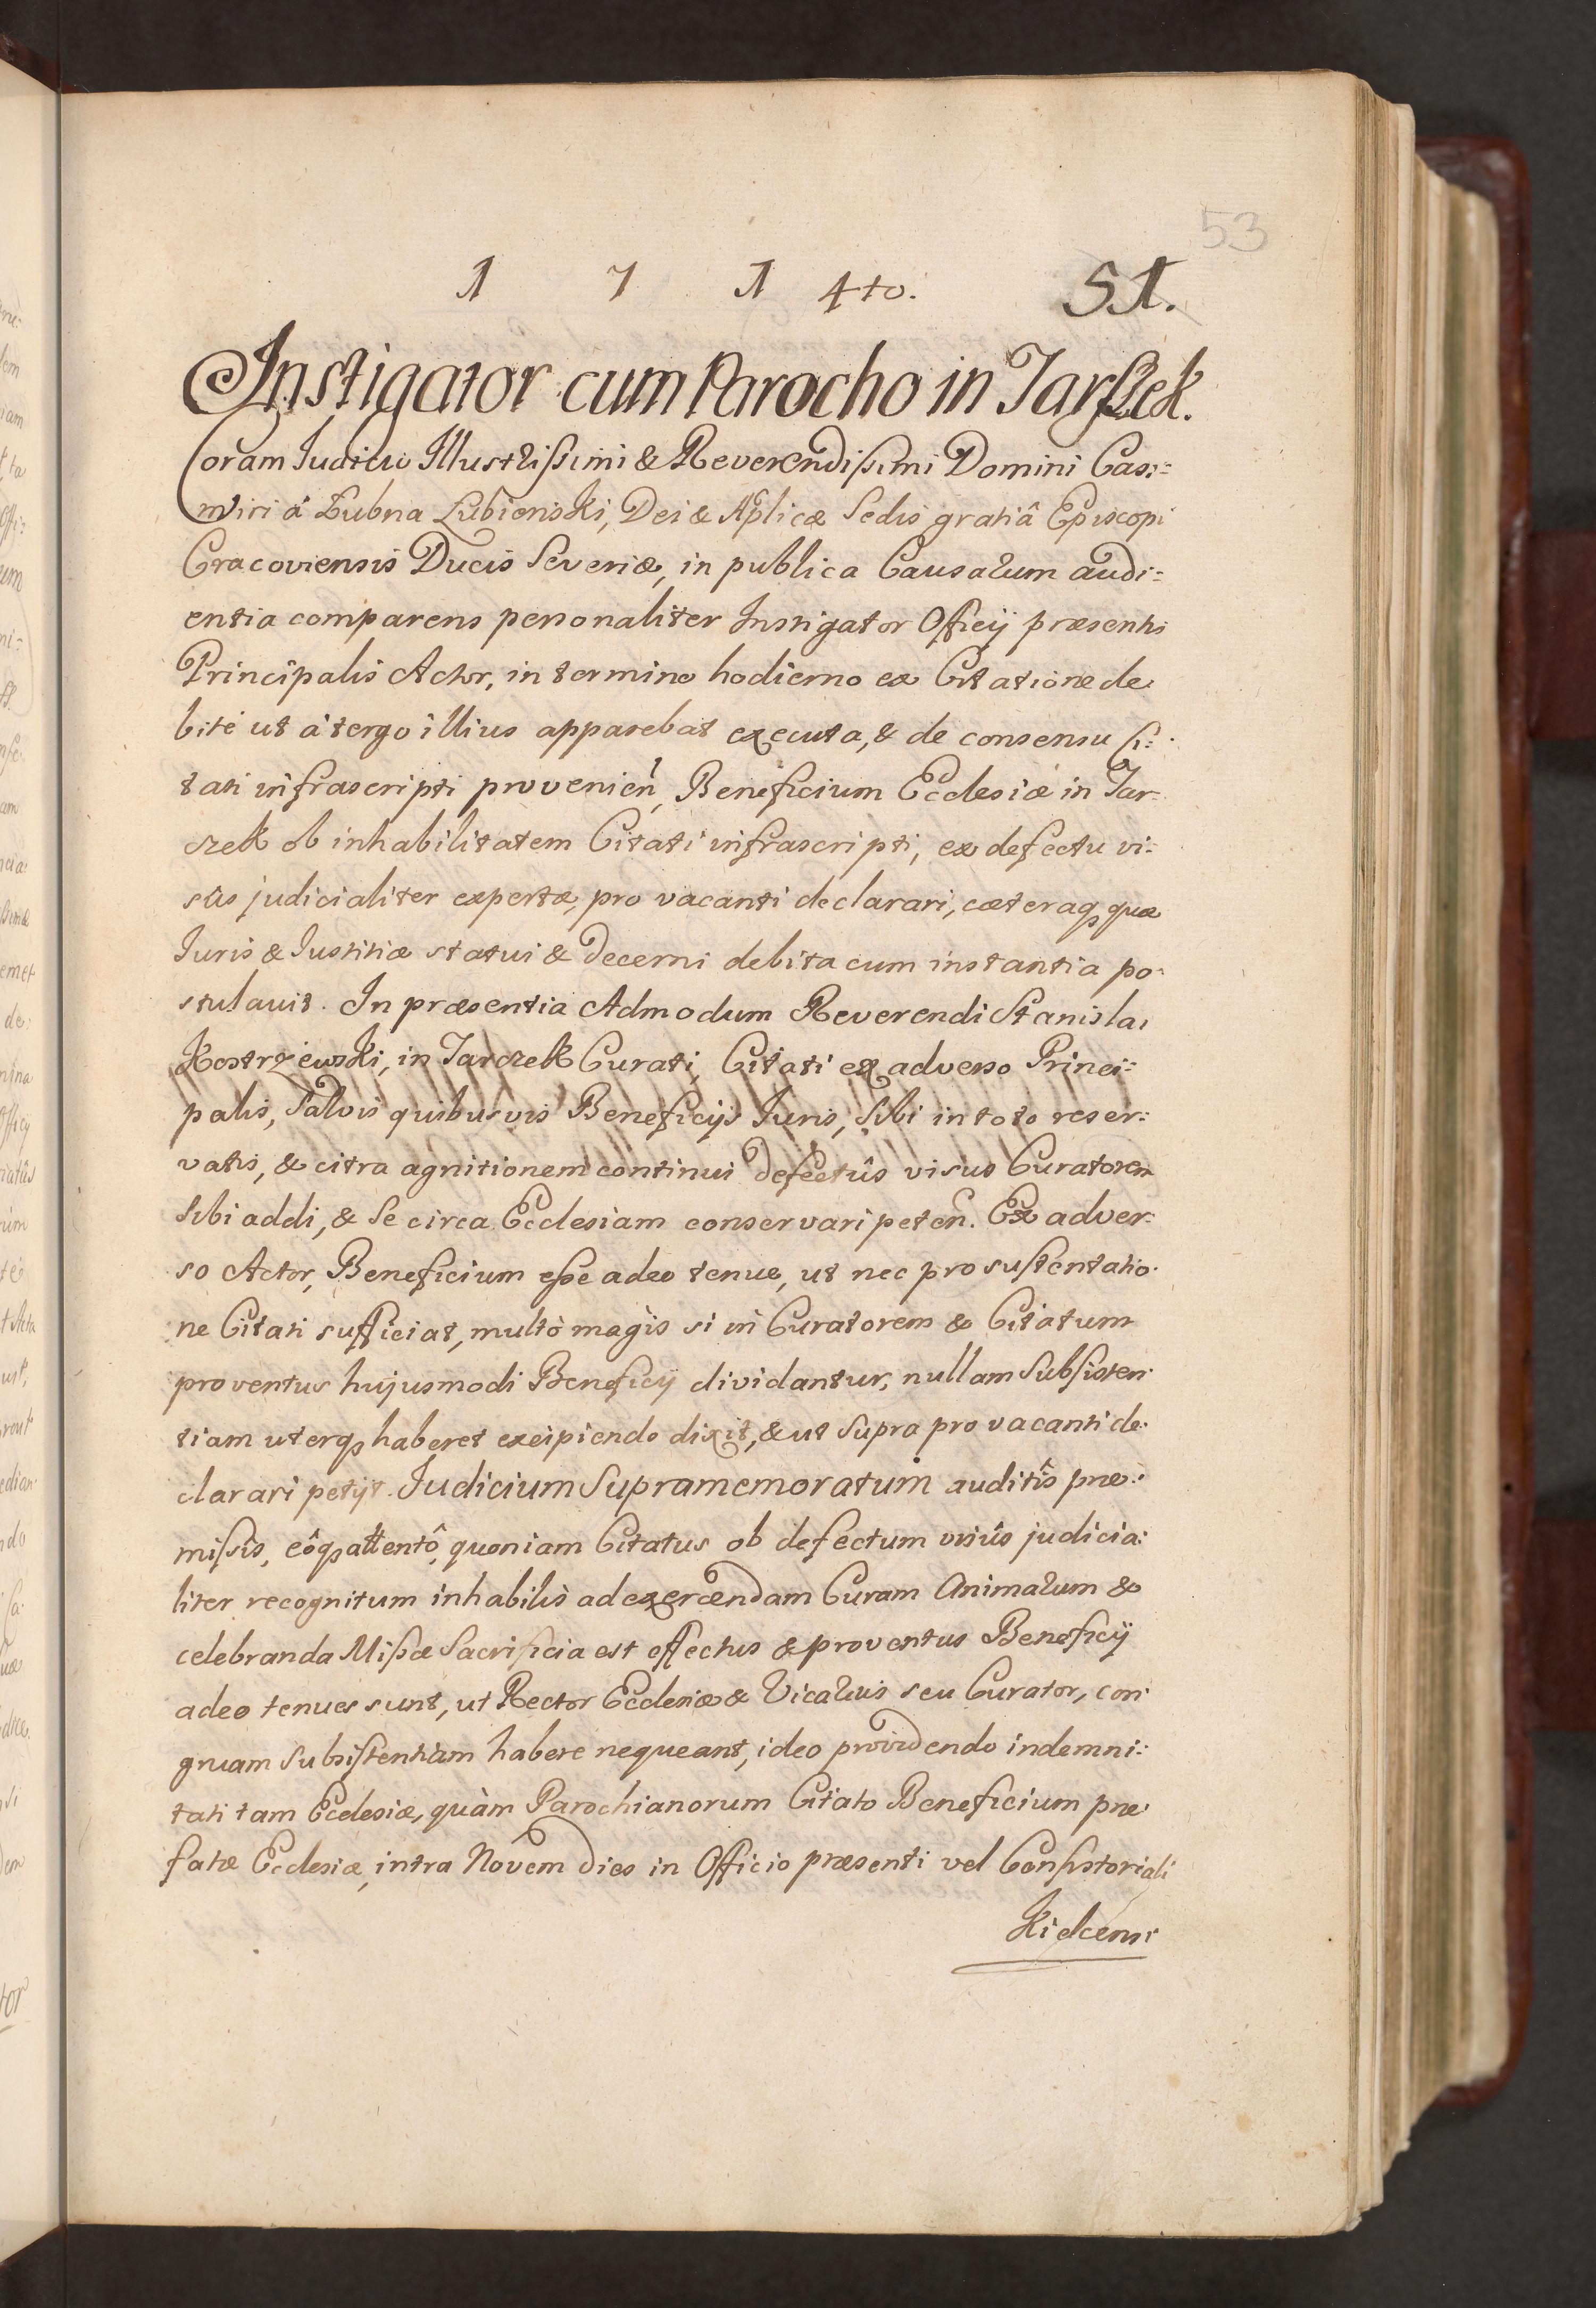 53
1 7 1 4to. 51.
Instigator cum Parocho in Tarszek.
Coram Iudicio Illustrissimi & Reverendissimi Domini Casi:
miri á Łubna Łubienski, Dei & Aplicæ Sedis gratiâ Episcopi
Cracoviensis Ducis Severiæ, in publica Causarum audi:
entia comparens personaliter Instigator Officij præsentis
Principalis Actor, in termino hodierno ex Citatione de
bité ut á tergo illius apparebat executa, & de consensu Ci:
tati infrascripti provenien̄, Beneficium Ecclesiæ in Tar:
czek ob inhabilitatem Citati infrascripti, ex defectu vi:
sûs judicialiter expertæ, pro vacanti declarari, cæteraqꝫ quæ
Iuris & Iustitiæ statui & decerni debita cum instantia po:
stulavit. In præsentia Admodum Reverendi Stanislai
Kostrzewski, in Tarczek Curati, Citati ex adverso Princi:
palis, Salvis quibusvis Beneficijs Iuris, Sibi in toto reser:
vatis, & citra agnitionem continui defectûs visus Curatorem
Sibi addi, & Se circa Ecclesiam conservari peten̄. Ex adver:
so Actor, Beneficium esse adeo tenue, ut nec pro sustentatio:
ne Citati sufficiat, multò magis si in Curatorem & Citatum
proventus hujusmodi Beneficij dividantur, nullam Subsisten:
tiam uterqꝫ haberet excipiendo dixit, & ut Supra pro vacanti de:
clarari petijt. Iudicium Supramemoratum auditîs præ:
missis, eôqꝫ attentô, quoniam Citatus ob defectum visûs judicia:
liter recognitum inhabilis ad exercendam Curam Animarum &
celebranda Missæ Sacrificia est effectus & proventus Beneficij
adeo tenues sunt, ut Rector Ecclesiæ & Vicarius seu Curator, con:
gruam Subsistentiam habere nequeant, ideo providendo indemni:
tati tam Ecclesiæ, quàm Parochianorum Citato Beneficium præ:
fatæ Ecclesiæ, intra Novem dies in Officio præsenti vel Consistoriali
Kielcensi